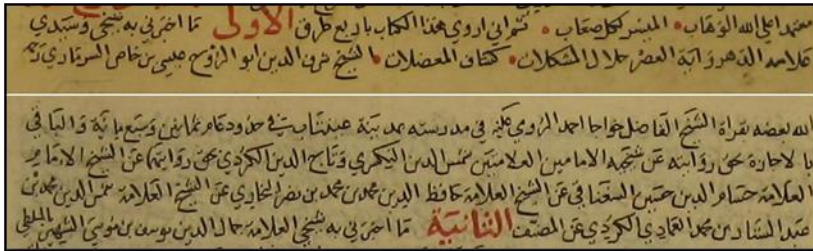 معتمدا على الله الوهاب • الميسر كل صعاب • ثم اني اروي هذا الكتاب باربع طرق الأولى ما اخبرني به شيخي وسيدي
علامة الدهر وآية العصر حلال المشكلات • كشاف المعضلات • الشيخ شرف الدين ابو الروح عيسى بن خاص السرماري رحمه
الله بعضه بقراة الشيخ الفاضل خواجا احمد الرومي عليه في مدرسته بمدينة عينتاب في حدود عام ثمانين وسبع ماية والباقي
بالاجازة بحق روايته عن شيخيه الامامين العلامتين شمس الدين النكيري وتاج الدين الكردي بحق روايتهما عن الشيخ الامام
العلامة حسام الدين حسين السغناقي عن الشيخ العلامة حافظ الدين محمد بن محمد بن نصر البخاري عن الشيخ العلامة شمس الدين محمد بن
عبد الستار بن محمد العمادي الكردي عن المصنف الثانية ما اخبرني به شيخي العلامة جمال الدين يوسف بن موسى الشهير بالملطي